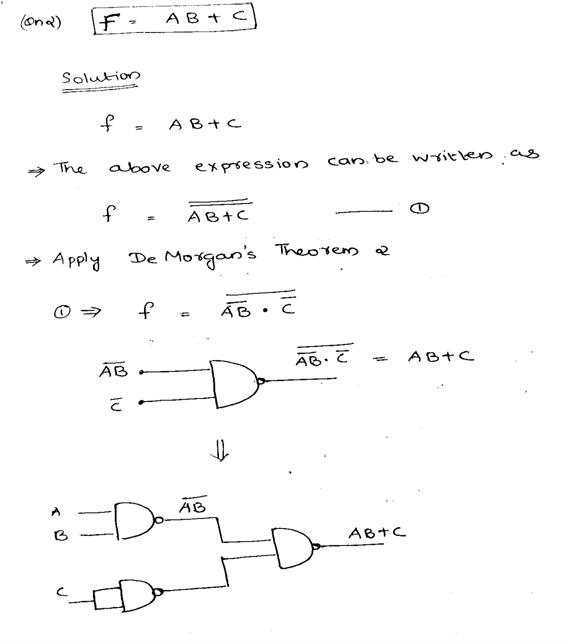 (Qn2) F = AB + C
Solution
f = AB + C
⇒ The above expression can be written as
f = \overline{\overline{AB+C}} —— ①
⇒ Apply De Morgan's Theorem 2
① ⇒ f = \overline{\overline{AB} · \overline{C}}
\overline{AB} \overline{\overline{AB} · \overline{C}} = AB+C
\overline{C}
⇓
A \overline{AB}
B AB+C
C